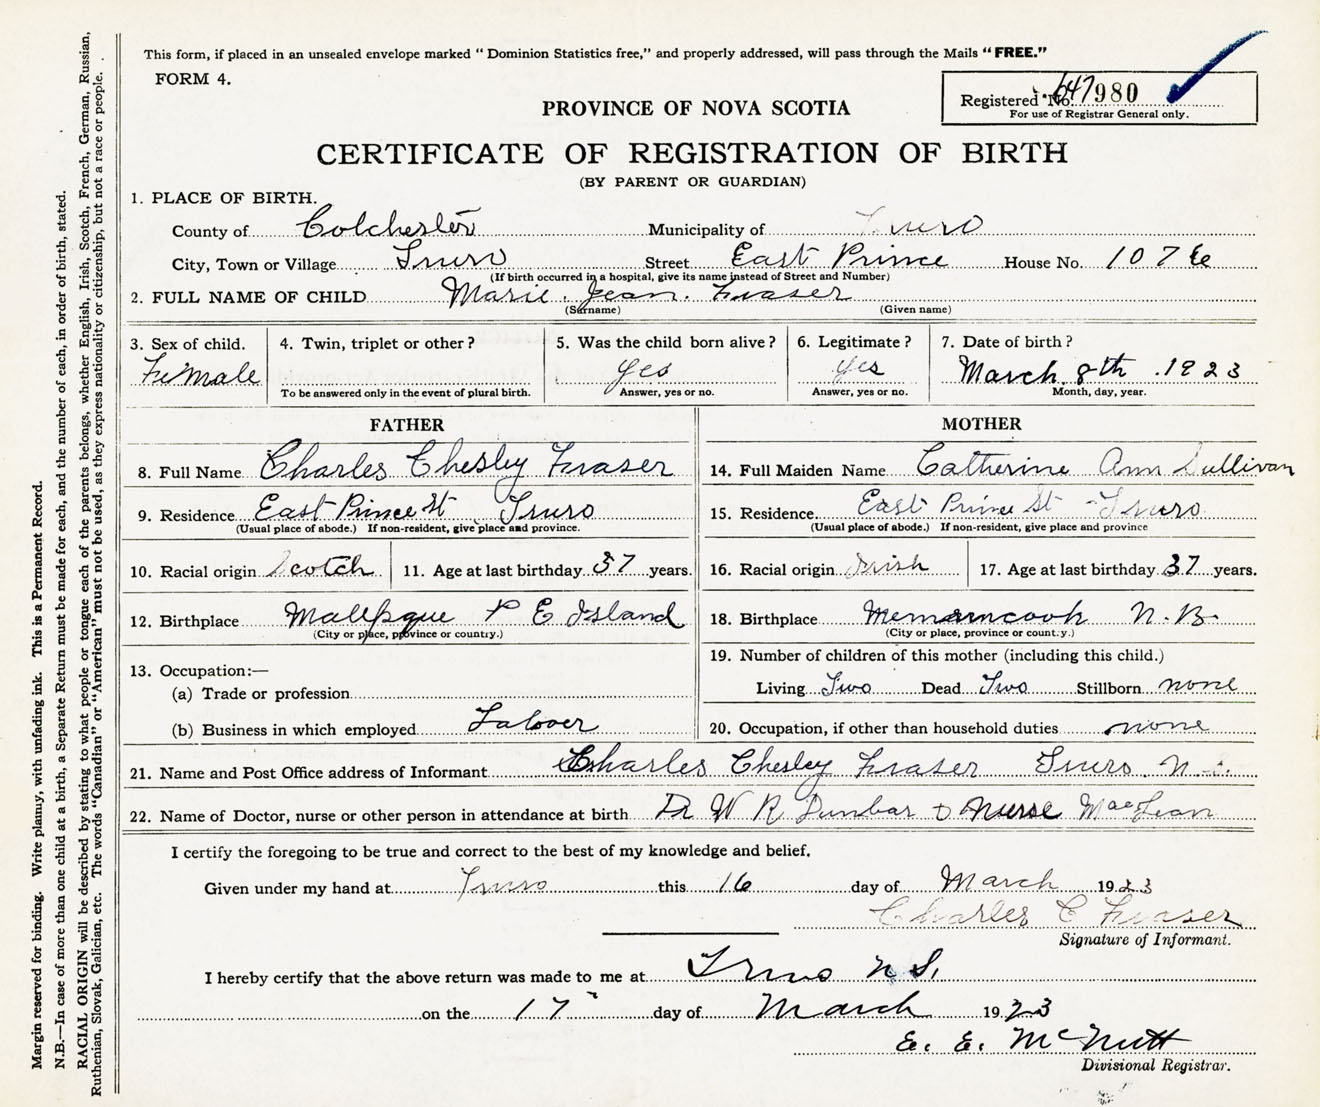 This form, if placed in an unsealed envelope marked "Dominion Statistics free," and properly addressed, will pass through the Mails "FREE."
FORM 4.
Registered No. 647980
For use of Registrar General only.
PROVINCE OF NOVA SCOTIA
CERTIFICATE OF REGISTRATION OF BIRTH
(BY PARENT OR GUARDIAN)
1. PLACE OF BIRTH.
County of Colchester Municipality of Truro
City, Town or Village Truro Street East Prince House No. 107
(If birth occurred in a hospital, give its name instead of Street and Number)
2. FULL NAME OF CHILD Marie. Jean. Fraser
(Surname) (Given name)
3. Sex of child. 4. Twin, triplet or other? 5. Was the child born alive? 6. Legitimate? 7. Date of birth?
Female yes yes March 8th 1923
To be answered only in the event of plural birth. Answer, yes or no. Answer, yes or no. Month, day, year.
FATHER
8. Full Name Charles Chesley Fraser
9. Residence East Prince St Truro
(Usual place of abode.) If non-resident, give place and province.
10. Racial origin Scotch 11. Age at last birthday 37 years.
12. Birthplace Malepque P E Island
(City or place, province or country.)
13. Occupation:—
(a) Trade or profession
(b) Business in which employed Labover
MOTHER
14. Full Maiden Name Catherine Ann Sullivan
15. Residence. East Prince St Truro
(Usual place of abode.) If non-resident, give place and province
16. Racial origin Irish 17. Age at last birthday 37 years.
18. Birthplace N.B.
(City or place, province or country.)
19. Number of children of this mother (including this child.)
Living Two Dead Two Stillborn none
20. Occupation, if other than household duties none
21. Name and Post Office address of Informant Charles Chesley Fraser Truro. N.S.
22. Name of Doctor, nurse or other person in attendance at birth Dr W R Dunbar & Nurse MacLean
I certify the foregoing to be true and correct to the best of my knowledge and belief.
Given under my hand at Truro this 16 day of March 1923
Charles C Fraser
Signature of Informant.
I hereby certify that the above return was made to me at Truro N.S.
on the 17 day of March 1923
E. E. McNutt
Divisional Registrar.
Margin reserved for binding. Write plainly, with unfading ink. This is a Permanent Record.
N.B.—In case of more than one child at a birth, a Separate Return must be made for each, and the number of each, in order of birth, stated.
RACIAL ORIGIN will be described by stating to what people or tongue each of the parents belongs, whether English, Irish, Scotch, French, German, Russian,
Ruthenian, Slovak, Galician, etc. The words "Canadian" or "American" must not be used, as they express nationality or citizenship, but not a race or people.